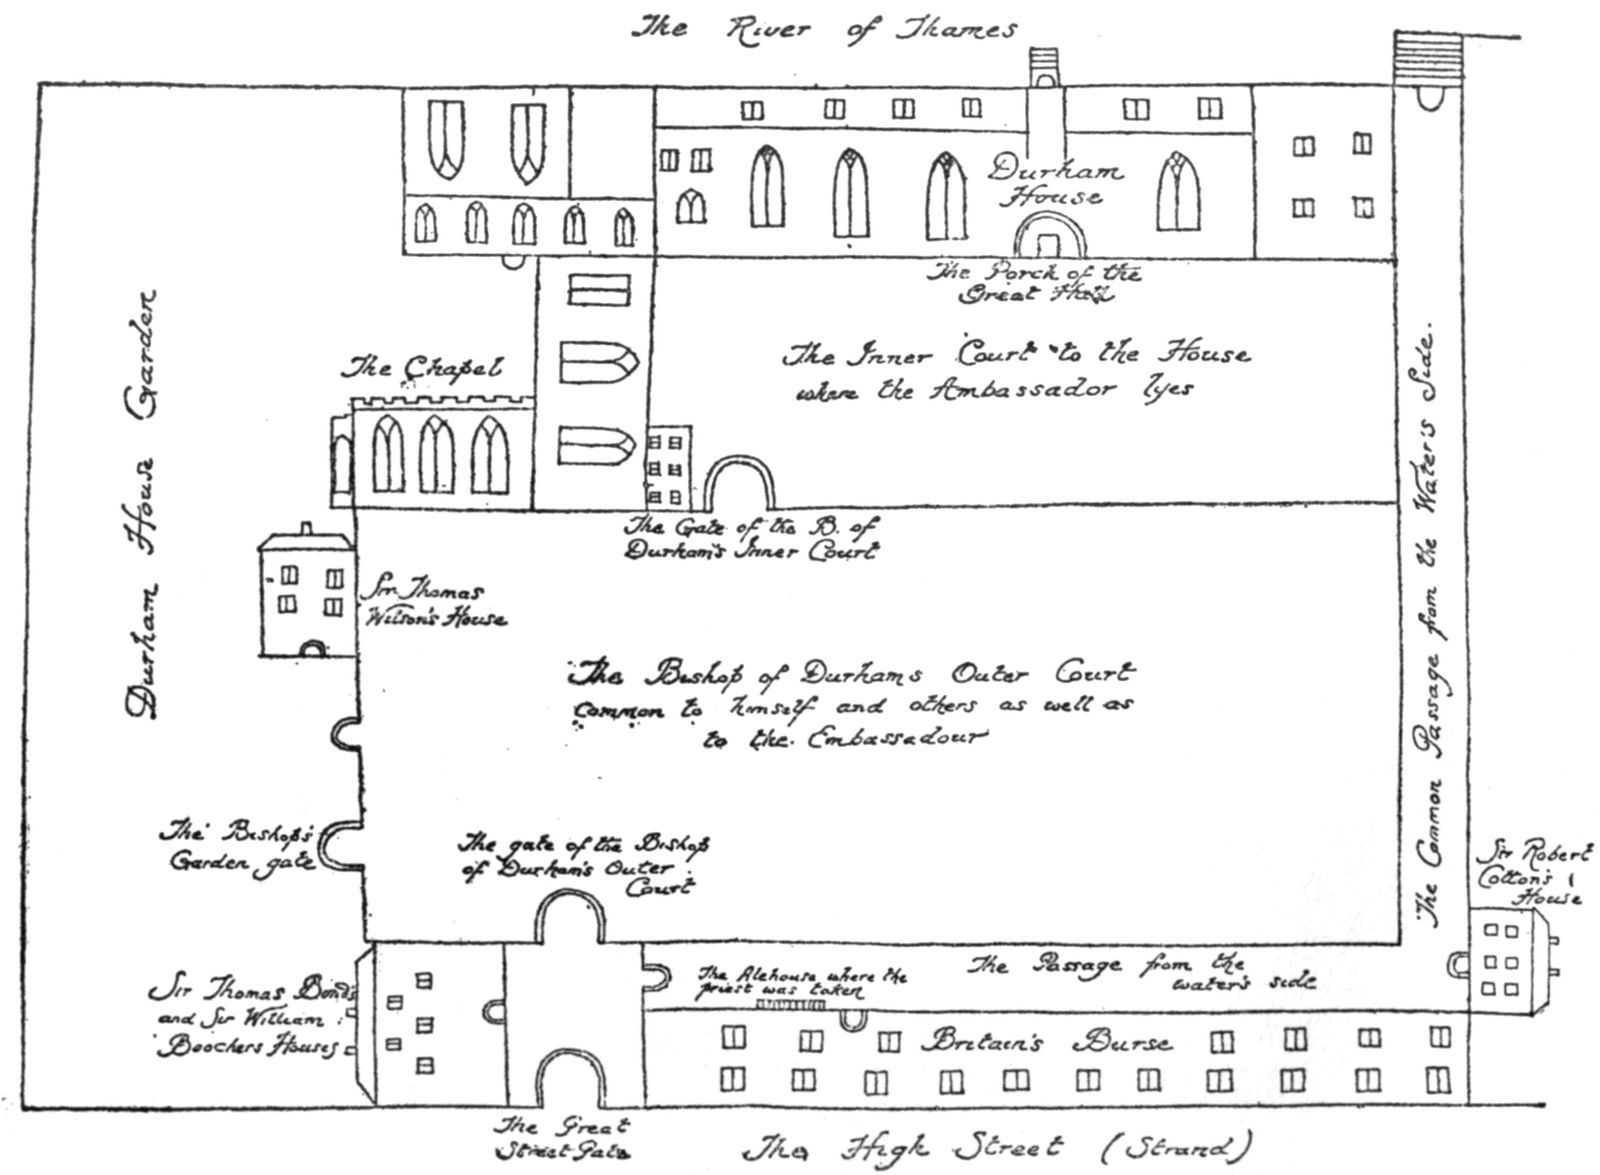 The River of Thames
Durham
House
The Porch of the
Great Hall
The Inner Court to the House
where the Ambassador lyes
The Chapel
Durham House Garden
The Gate of the B. of
Durham's Inner Court
Sir Thomas
Wilson's House
The Bishop of Durhams Outer Court
common to himself and others as well as
to the Embassadour
The Common Passage from the Water's Side.
The Bishop's
Garden gate
The gate of the Bishop
of Durham's Outer
Court
Sir Robert
Cotton's
House
The Alehouse where the
priest was taken
The Passage from the
water's side
Sir Thomas Bond's
and Sir William
Boochers Houses
Britain's Burse
The Great
Street Gate
The High Street (Strand)